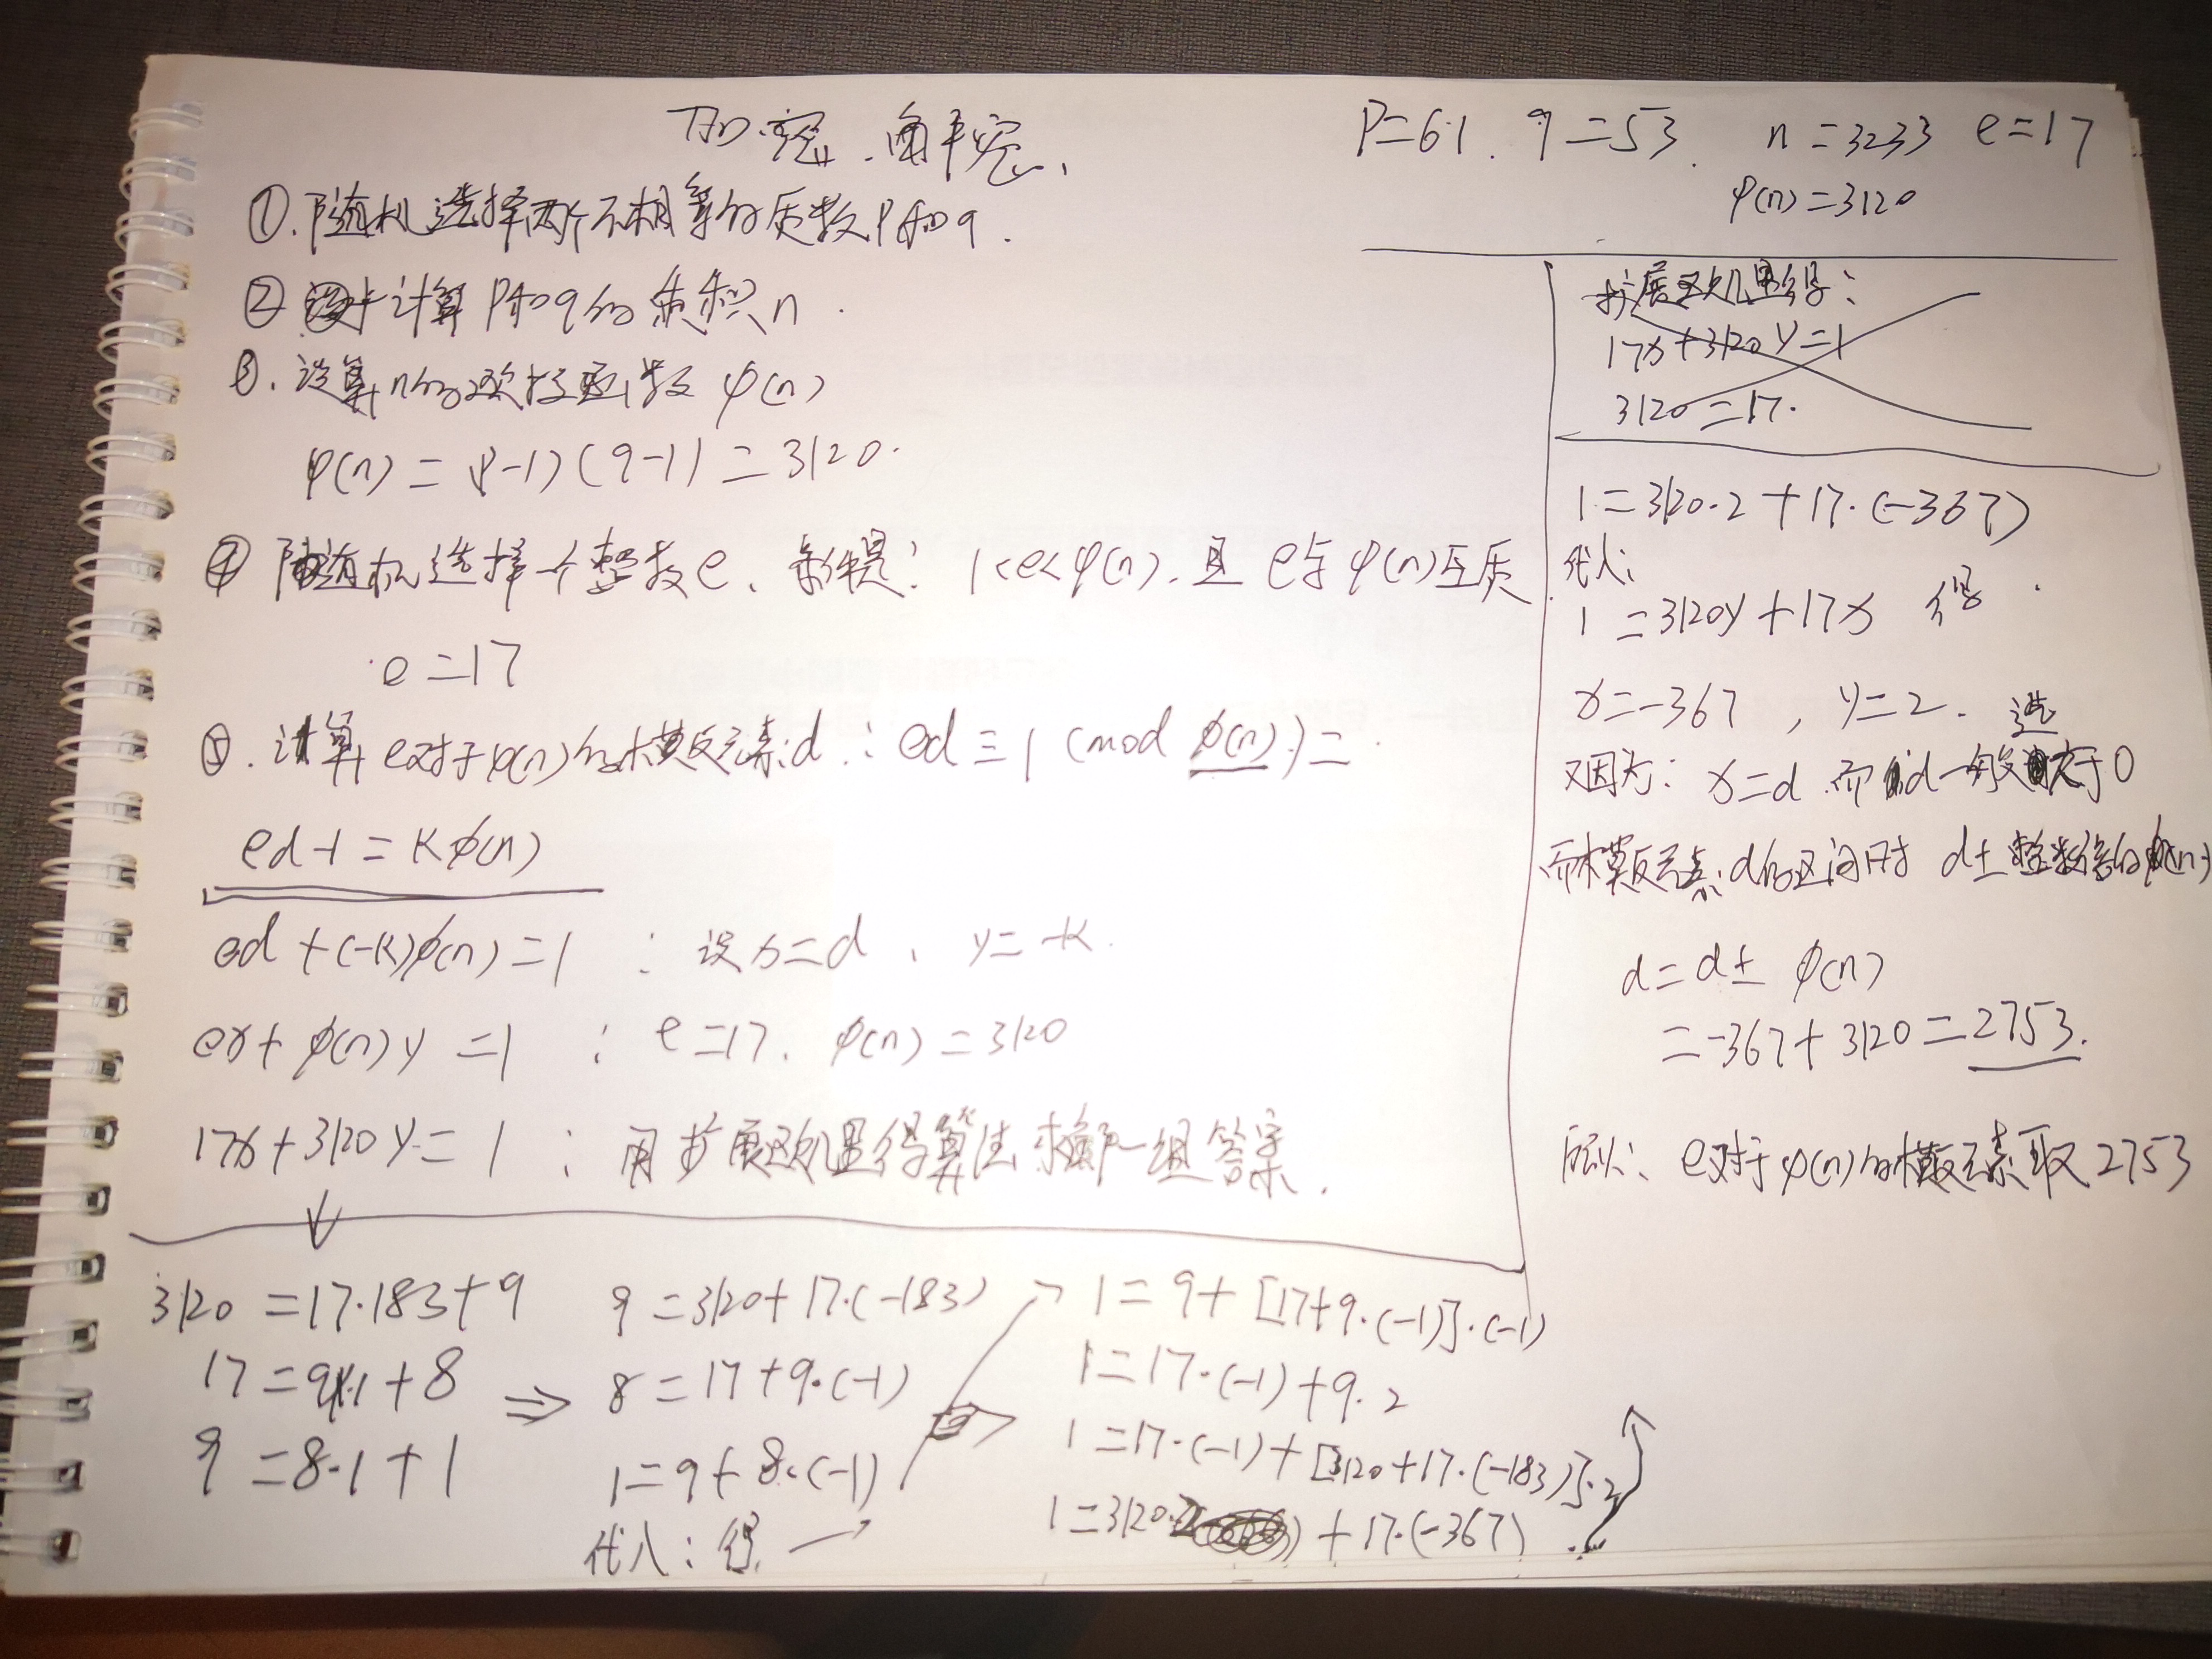 加密、解密、
P=61、q=53、 n=3233 e=17
φ(n)=3120
①.随机选择两个不相等的质数P和q.
② 计算P和q的乘积n.
③.计算n的欧拉函数 φ(n)
φ(n) = (P-1)(q-1) = 3120.
④ 随机选择一个整数e、条件是: 1<e<φ(n).且 e与φ(n)互质
e=17
⑤.计算e对于φ(n)的模反元素d : ed ≡ 1 (mod φ(n)) =
ed-1=Kφ(n)
ed+(-K)φ(n)=1 : 设x=d、y=-K.
ex+φ(n)y=1 : e=17、φ(n)=3120
17x+3120y=1 : 用扩展欧几里得算法求解一组答案.
↓
3120=17·183+9
17=9·1+8
9=8·1+1
⇒
9=3120+17·(-183)
8=17+9·(-1)
1=9+8·(-1)
代入:得
1=9+[17+9·(-1)]·(-1)
1=17·(-1)+9·2
1=17·(-1)+[3120+17·(-183)]·2
1=3120·2+17·(-367)
扩展欧几里得:
17x+3120y=1
3120=17.
1=3120·2+17·(-367)
代入:
1=3120y+17x 得
x=-367, y=2.
又因为: x=d 而d一般选大于0
而模反元素d的区间时 d±整数倍的φ(n)
d=d±φ(n)
=-367+3120=2753.
所以: e对于φ(n)的模反元素取2753